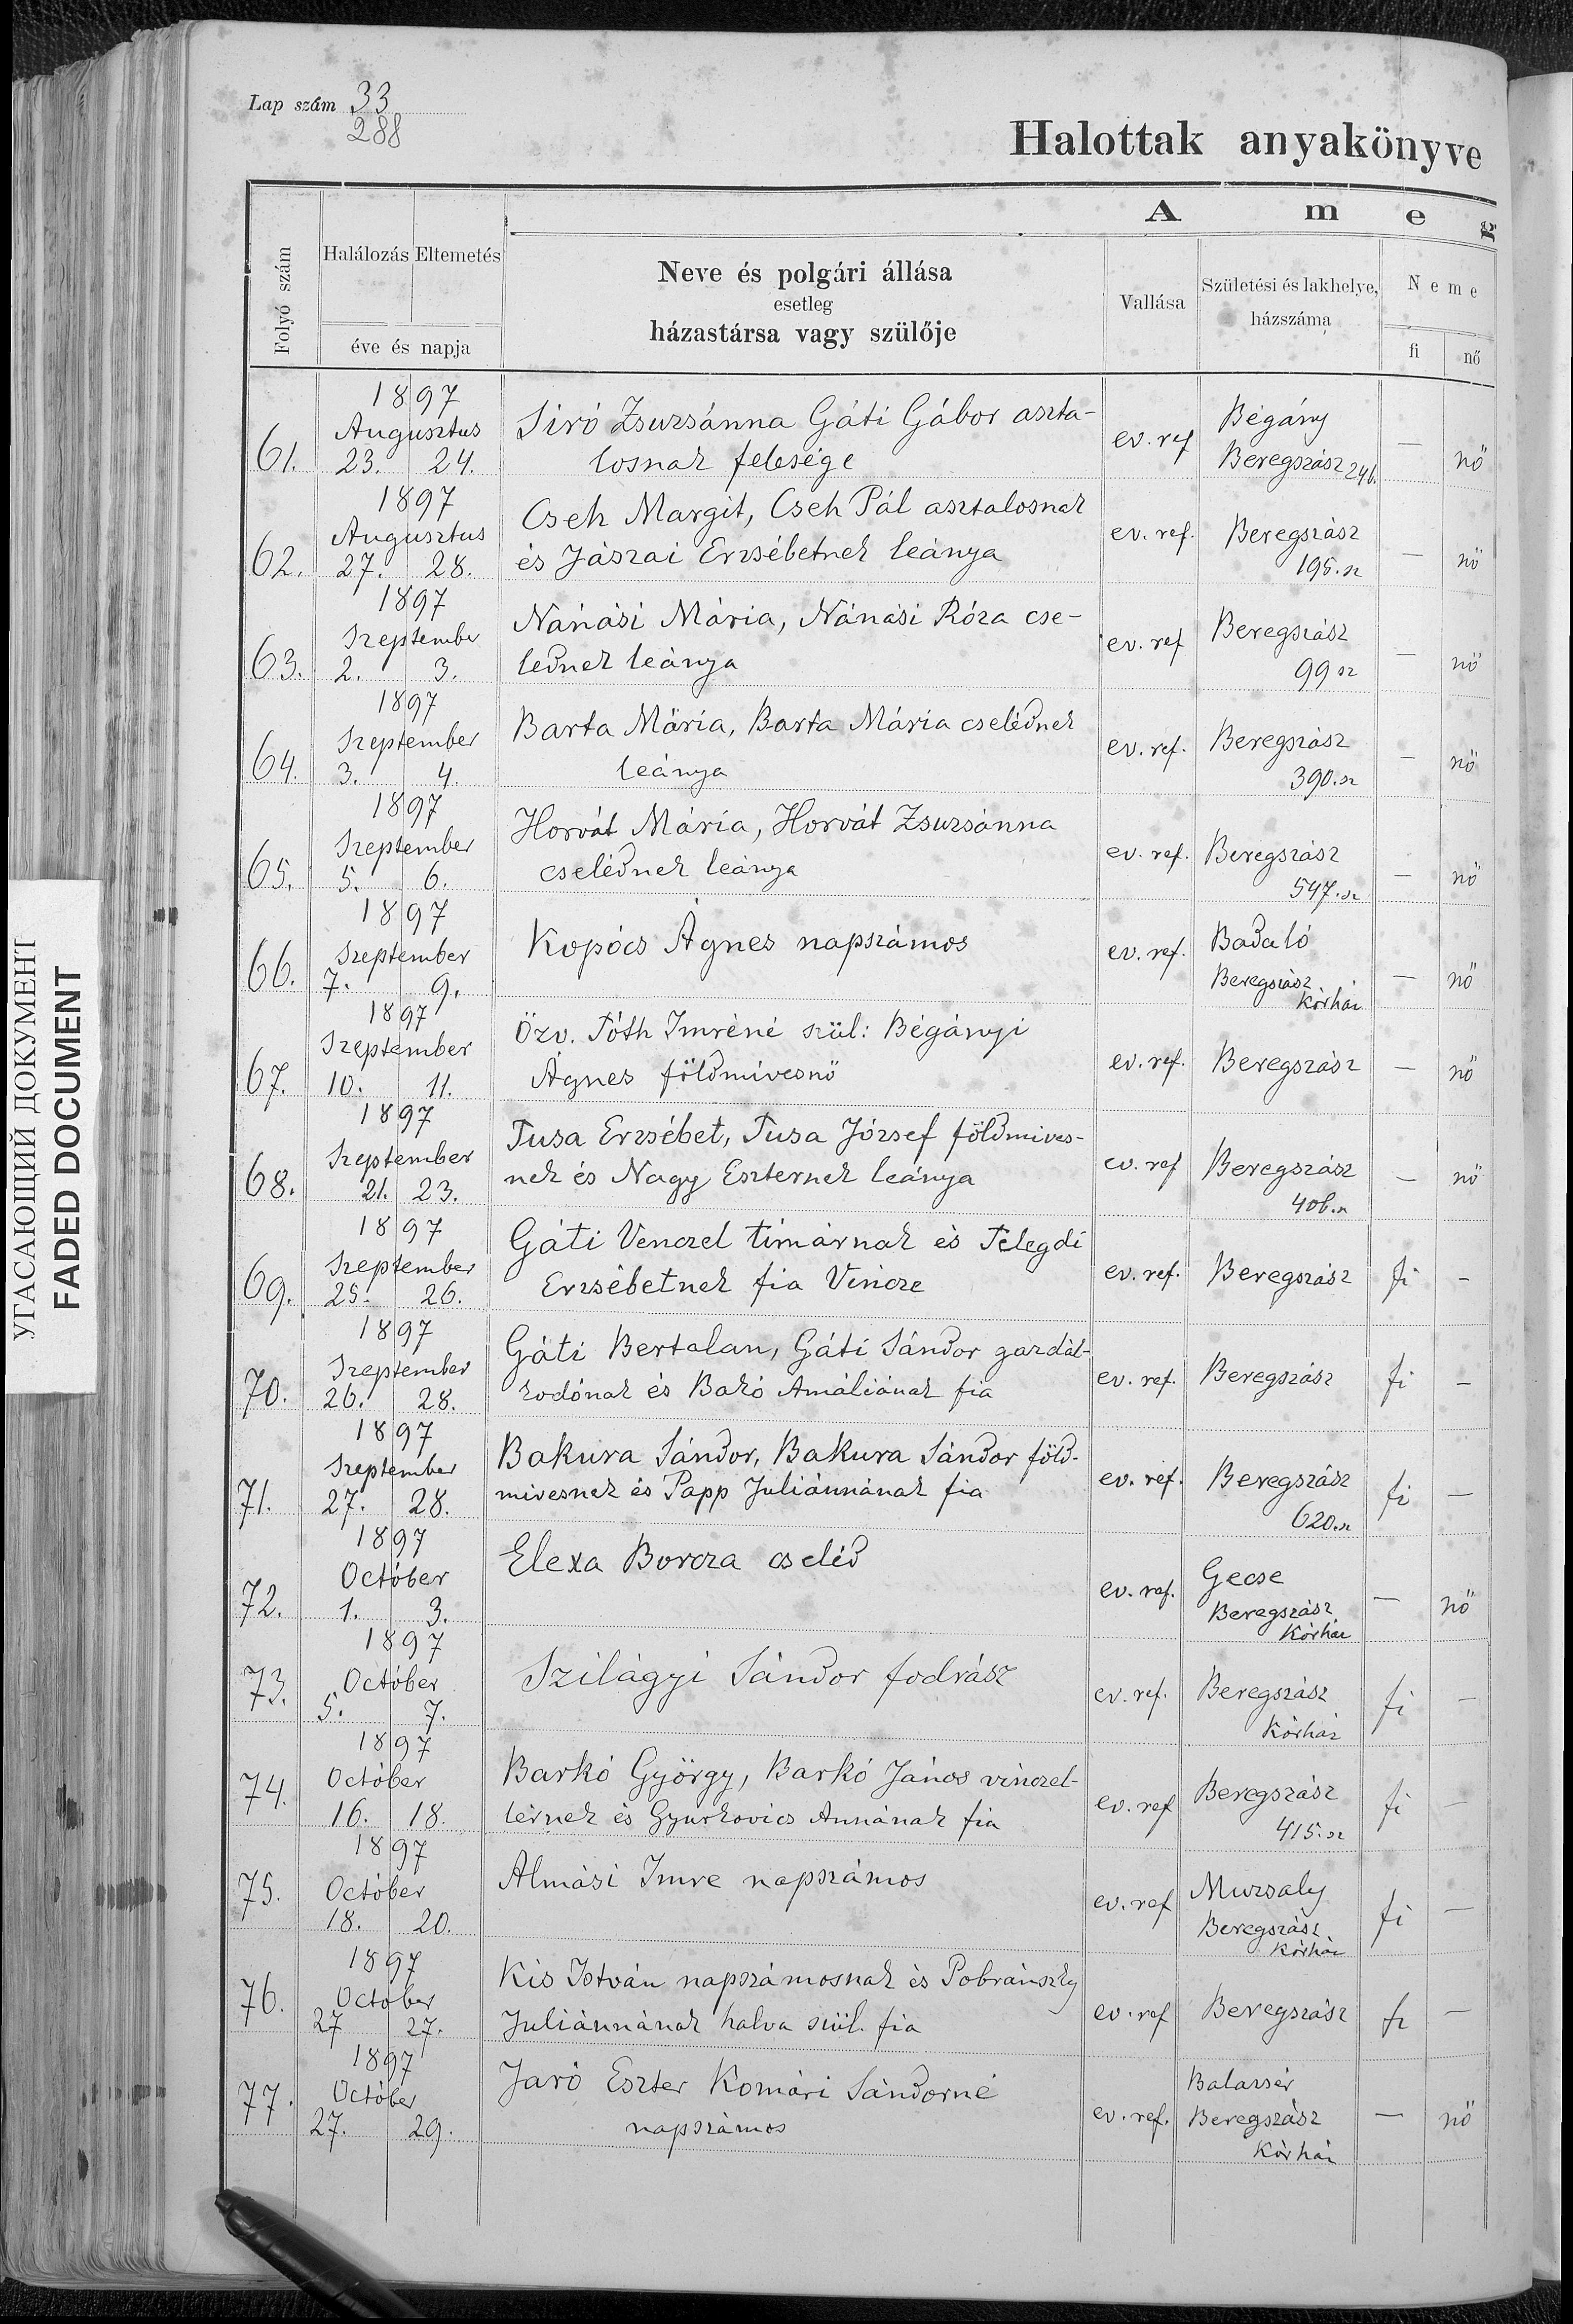 Lap szám 33
288
Halottak anyakönyve
A m e g
Folyó szám
Halálozás Eltemetés
éve és napja
Neve és polgári állása
esetleg
házastársa vagy szülője
Vallása
Születési és lakhelye,
házszáma
Neme
fi nő
1897
Augusztus
61. 23. 24.
Siró Zsuzsánna Gáti Gábor aszta-
losnak felesége
ev. ref
Bégány
Beregszász 246.
— nő
1897
Augusztus
62. 27. 28.
Cseh Margit, Cseh Pál asztalosnak
és Jászai Erzsébetnek leánya
ev. ref.
Beregszász
195. sz
— nő
1897
Szeptember
63. 2. 3.
Nánási Mária, Nánási Róza cse-
lednek leánya
ev. ref
Beregszász
99 sz
— nő
1897
Szeptember
64. 3. 4.
Barta Mária, Barta Mária cselédnek
leánya
ev. ref.
Beregszász
390. sz
— nő
1897
Szeptember
65. 5. 6.
Horvát Mária, Horvát Zsuzsánna
cselédnek leánya
ev. ref.
Beregszász
547. sz
— nő
1897
Szeptember
66. 7. 9.
Kopócs Ágnes napszámos
ev. ref.
Badaló
Beregszász
Kórház
— nő
1897
Szeptember
67. 10. 11.
Özv. Tóth Imréné szül: Bégányi
Ágnes földmivesnő
ev. ref.
Beregszász
— nő
1897
Szeptember
68. 21. 23.
Tusa Erzsébet, Tusa József földmives-
nek és Nagy Eszternek leánya
ev. ref
Beregszász
406. sz
— nő
1897
Szeptember
69. 25. 26.
Gáti Venczel timárnak és Telegdi
Erzsébetnek fia Vincze
ev. ref.
Beregszász
fi -
1897
Szeptember
70. 26. 28.
Gáti Bertalan, Gáti Sándor gazdál-
kodónak és Bakó Amáliának fia
ev. ref.
Beregszász
fi -
1897
Szeptember
71. 27. 28.
Bakura Sándor, Bakura Sándor föld-
mivesnek és Papp Juliánnának fia
ev. ref.
Beregszász
620. sz
fi —
1897
Október
72. 1. 3.
Elexa Borcza cseléd
ev. ref.
Gecse
Beregszász
Kórház
— nő
1897
Octóber
73. 5. 7.
Szilágyi Sándor fodrász
ev. ref.
Beregszász
Kórház
fi —
1897
Octóber
74. 16. 18.
Barkó György, Barkó János vinczel-
lérnek és Gyurkovics Annának fia
ev. ref
Beregszász
415. sz
fi —
1897
Octóber
75. 18. 20.
Almási Imre napszámos
ev. ref
Muzsaly
Beregszász
Kórház
fi —
1897
Octóber
76. 27 27.
Kis István napszámosnak és Pobránszky
Juliánnának halva szül. fia
ev. ref
Beregszász
fi —
1897
Octóber
77. 27. 29.
Jaró Eszter Komári Sándorné
napszámos
ev. ref.
Balazsér
Beregszász
Kórház
— nő
УГАСАЮЩИЙ ДОКУМЕНТ
FADED DOCUMENT